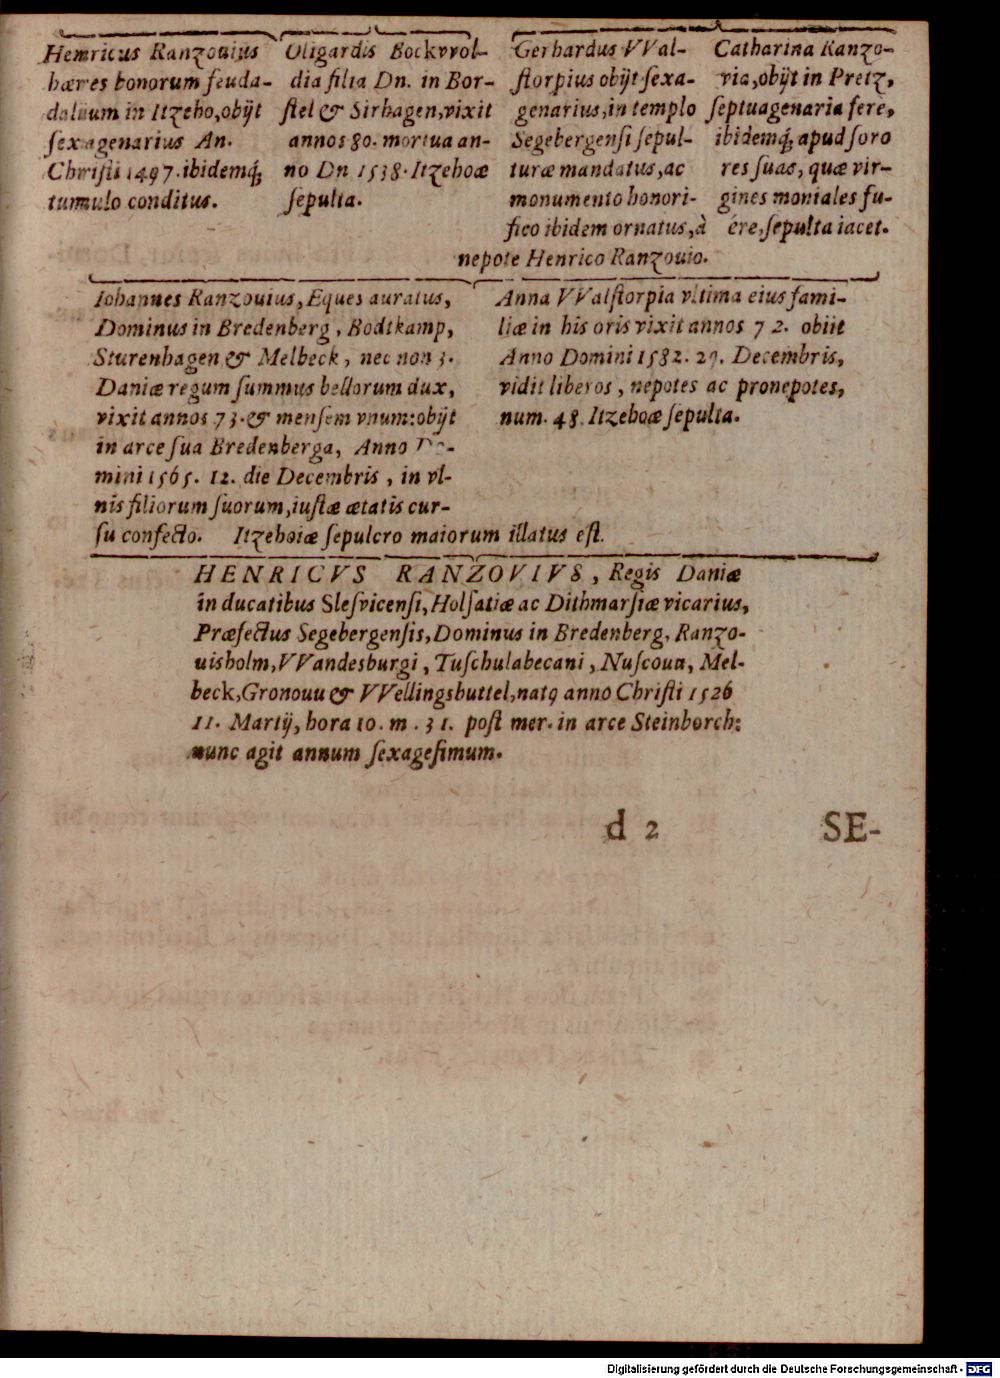 Henricus Ranzouius
hæres bonorum feuda-
dalium in Itzeho, obijt
sexagenarius An.
Christi 1497. ibidemq́;
tumulo conditus.
Oligardis Bockvvol-
dia filia Dn. in Bor-
stel & Sirhagen, vixit
annos 80. mortua an-
no Dn 1538. Itzehoæ
sepulta.
Gerhardus VVal-
storpius obijt sexa-
genarius, in templo
Segebergensi sepul-
turæ mandatus, ac
monumento honori-
fico ibidem ornatus, à
nepote Henrico Ranzouio.
Catharina Ranzo-
via, obijt in Pretz,
septuagenaria fere,
ibidemq́; apud soro
res suas, quæ vir-
gines moniales fu-
ére, sepulta iacet.
Iohannes Ranzouius, Eques auratus,
Dominus in Bredenberg, Bodtkamp,
Sturenhagen & Melbeck, nec non 3.
Daniæ regum summus bellorum dux,
vixit annos 73. & mensem vnum: obijt
in arce sua Bredenberga, Anno Do-
mini 1565. 12. die Decembris, in vl-
nis filiorum suorum, iustæ ætatis cur-
su confecto. Itzehoiæ sepulcro maiorum illatus est.
Anna VValstorpia vltima eius fami-
liæ in his oris vixit annos 72. obiit
Anno Domini 1582. 29. Decembris,
vidit liberos, nepotes ac pronepotes,
num. 48. Itzehoæ sepulta.
HENRICVS RANZOVIVS, Regis Daniæ
in ducatibus Slesvicensi, Holsatiæ ac Dithmarsiæ vicarius,
Præfectus Segebergensis, Dominus in Bredenberg, Ranzo-
uisholm, VVandesburgi, Tuschulabecani, Nuscoua, Mel-
beck, Gronouu & VVellingsbuttel, natq anno Christi 1526
11. Martij, hora 10. m. 31. post mer. in arce Steinborch:
nunc agit annum sexagesimum.
d 2 SE-
Digitalisierung gefördert durch die Deutsche Forschungsgemeinschaft - DFG